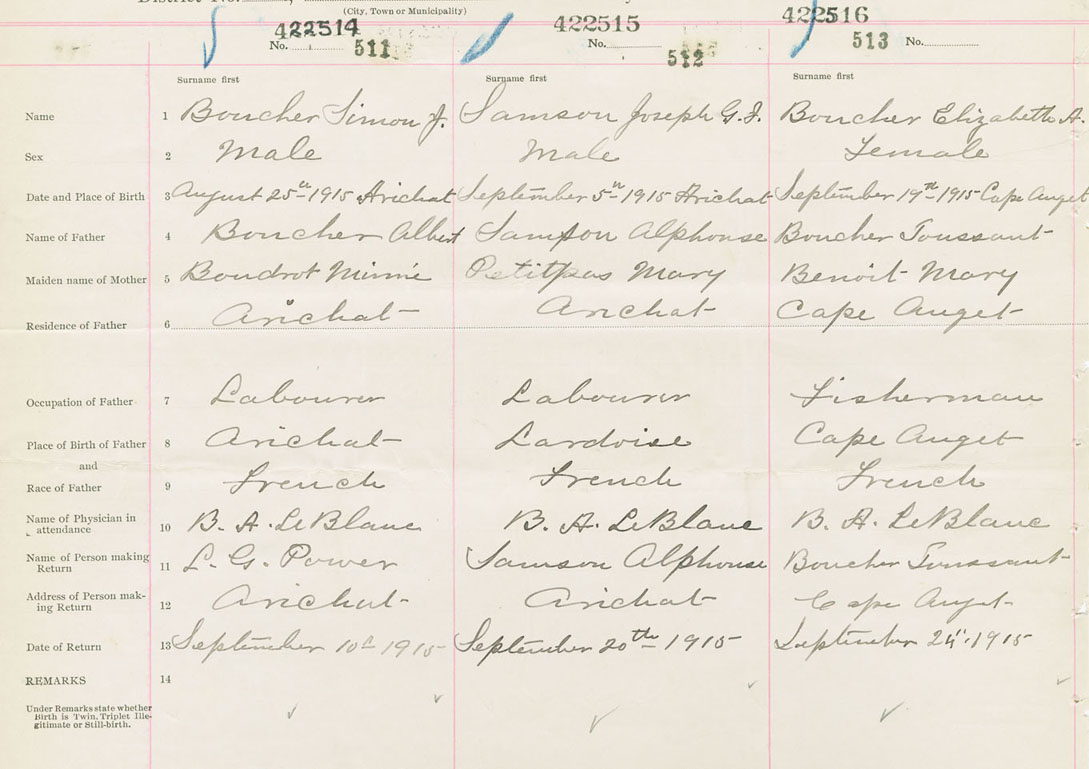 District No.
(City, Town or Municipality)
422514 422515 422516
No. 511 No. 512 513 No.
Surname first Surname first Surname first
Name 1 Boucher Simon J. Samson Joseph G. J. Boucher Elizabeth A.
Sex 2 Male Male Female
Date and Place of Birth 3 August 25th 1915 Arichat September 5th 1915 Arichat September 19th 1915 Cape Auget
Name of Father 4 Boucher Albert Samson Alphonse Boucher Toussaint
Maiden name of Mother 5 Boudrot Minnie Petitpas Mary Benoit Mary
Residence of Father 6 Arichat Arichat Cape Auget
Occupation of Father 7 Labourer Labourer Fisherman
Place of Birth of Father 8 Arichat Lardoise Cape Auget
and
Race of Father 9 French French French
Name of Physician in
attendance 10 B. A. LeBlanc B. A. LeBlanc B. A. LeBlanc
Name of Person making
Return 11 L. G. Power Samson Alphonse Boucher Toussaint
Address of Person mak-
ing Return 12 Arichat Arichat Cape Auget
Date of Return 13 September 10th 1915 September 20th 1915 September 24th 1915
REMARKS 14
Under Remarks state whether
Birth is Twin, Triplet Ille-
gitimate or Still-birth.